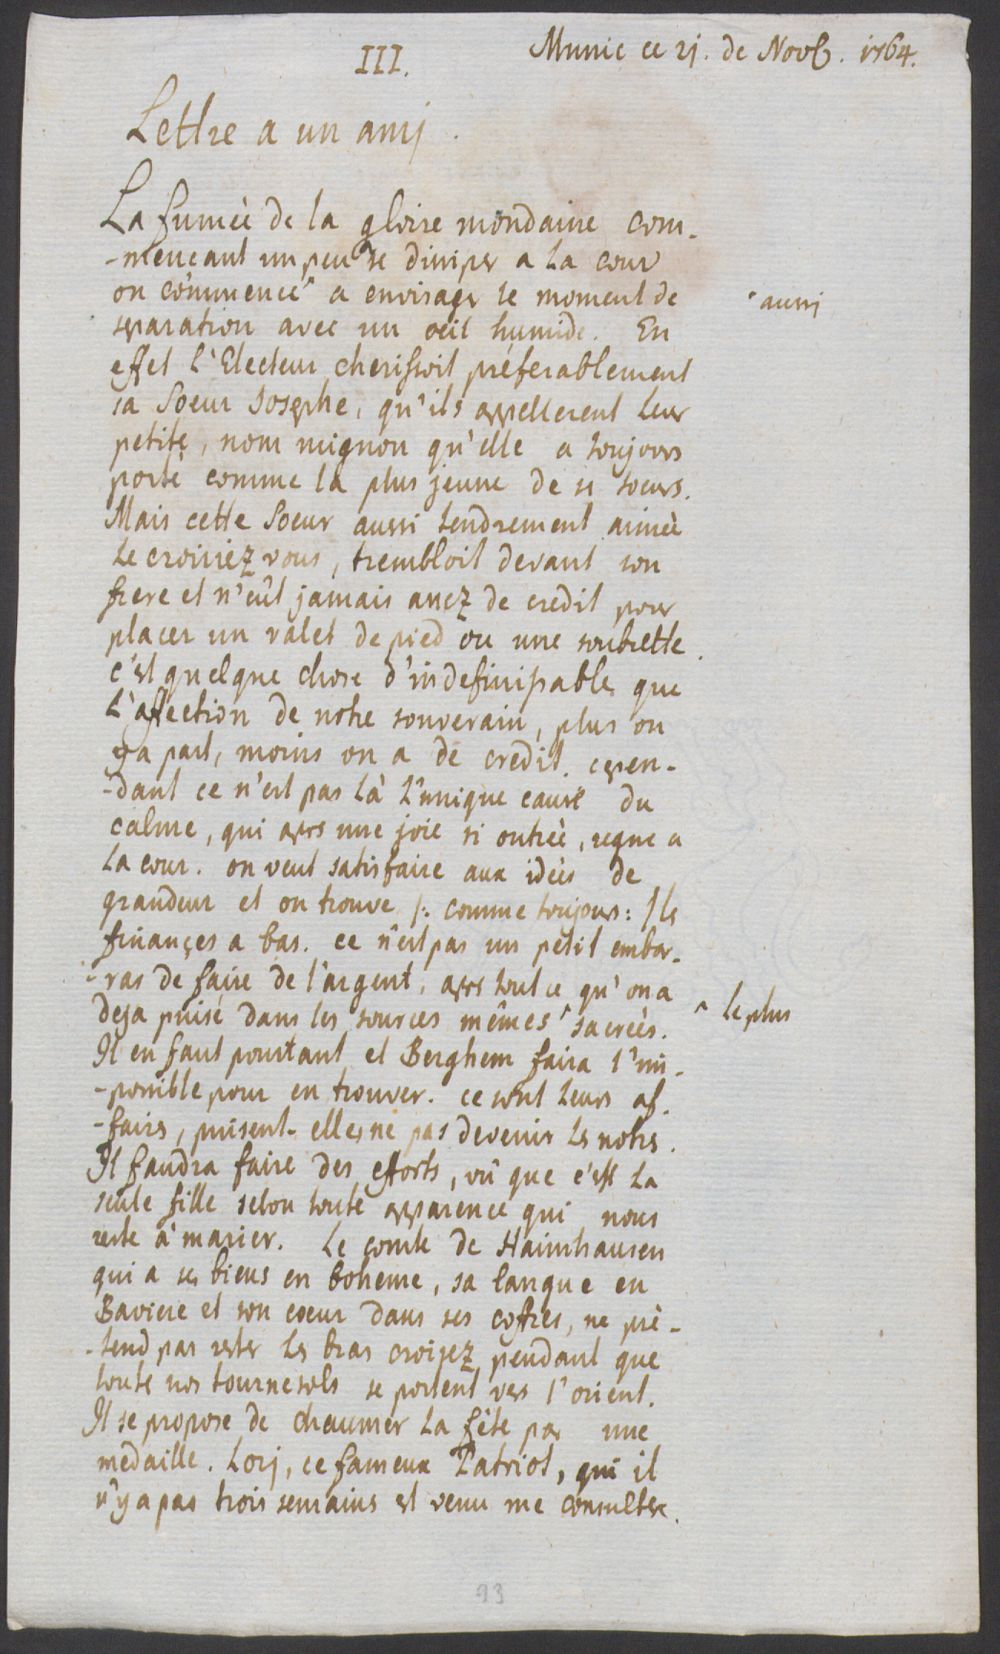 III.
Munic ce 21. de Novb. 1764.
Lettre a un amj.
La fumeè de la gloire mondaine com-
-mencant un peu se dissiper a La cour
on commence ^ a envisager le moment de
^ aussj
separation avec un oeil humide. En
effet l'Electeur cherissoit préferablement
sa Soeur Josephe, qu'ils appellerent Leur
petite, nom mignon qu'elle a toujours
porté comme la plus jeune de se soeurs.
Mais cette Soeur aussi tendrement aimeè
Le croiriez vous, trembloit devant son
frere et n'eût jamais assez de credit pour
placer un valet de pied ou une soubrette.
c'est quelque chose d'indefinissable, que
L'affection de notre souverain, plus on
y a part, moins on a de credit. cepen-
-dant ce n'est pas Là L'unique cause du
calme, qui aprs une joie si outreè, regne a
La cour. on veut satisfaire aux ideès de
grandeur et on trouve /: comme toujours: / Ls
finançes a bas. ce n'est pas un petit embar-
-ras de faire de l'argent, aprs tout ce qu'on a
deja puisé dans les sources mêmes ^ sacreès.
^ Le plus
Il en faut pourtant et Berghem faira l'im-
-possible pour en trouver. ce sont Leurs af-
-faires, puissent-elles ne pas devenir Ls notres.
Il faudra faire des efforts, vû que c'est La
seule fille selon toute apparence qui nous
reste à marier. Le comte de Haimhausen
qui a ses biens en boheme, sa langue en
Baviere et son coeur dans ses coffres, ne pré-
-tend pas rester Ls bras croisez, pendant que
touts nos tournesols se portent vers l'orient.
Il se propose de chaumer La fête par une
medaille. Lorj, ce fameux Patriot, qui il
n'y a pas trois semains est venu me consulter.
93